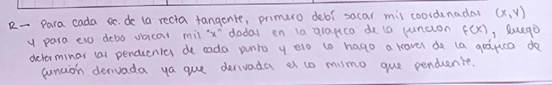 R→ Para cada ec. de la recta tangente, primero debí sacar mis coordenadas (x,y)
y para eso debo ubicar mis "x" dadas en la grafica de la funcion f(x), luego
determinar las pendientes de cada punto y eso lo hago a traves de la gráfica de
función derivada ya que derivada es lo mismo que pendiente.